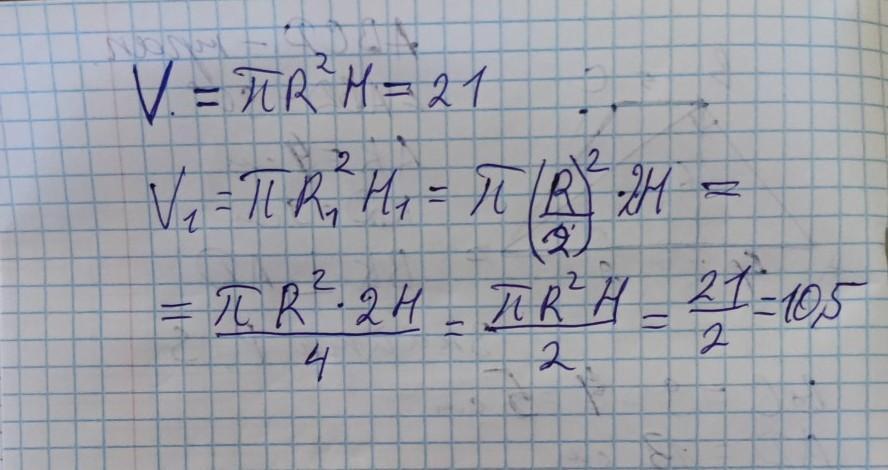 V. = πR²H = 21
V₁ = πR₁²H₁ = π(R/2)²·2H =
= πR²·2H/4 = πR²H/2 = 21/2 = 10,5